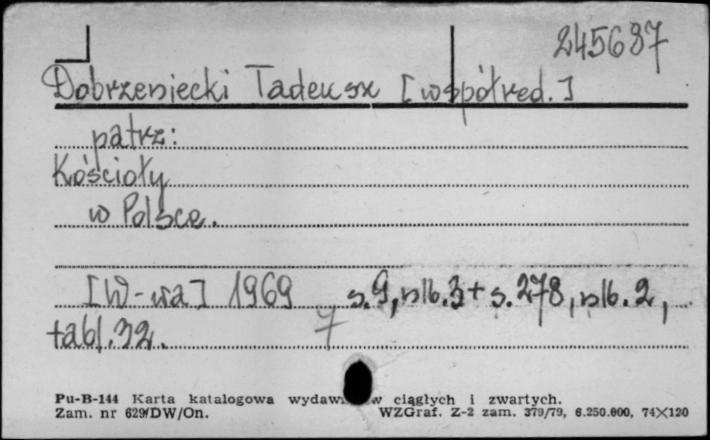 245687
Dobrzeniecki Tadeusz [współred.]
patrz:
Kościoły
w Polsce.
[W-wa] 1969 s.9, nlb.3 + s.278, nlb.2,
tabl.32. 7
Pu-B-144 Karta katalogowa wydaw w ciągłych i zwartych.
Zam. nr 629/DW/On. WZGraf. Z-2 zam. 379/79, 6.250.000, 74X120